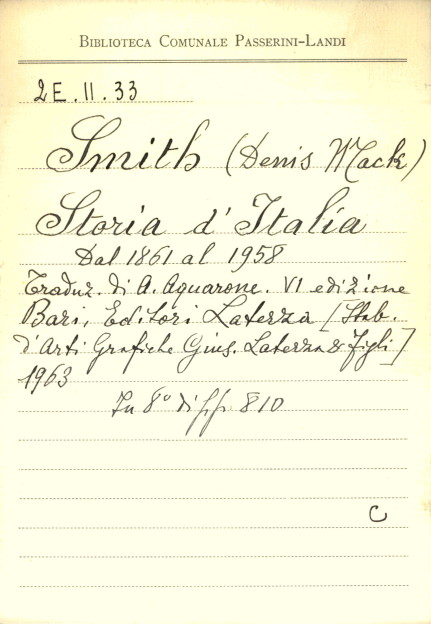 BIBLIOTECA COMUNALE PASSERINI-LANDI
2E.II.33
Smith (Denis Mack)
Storia d'Italia
Dal 1861 al 1958
Traduz. di A. Aquarone. VI edizione
Bari, Editori Laterza [Stab.
d'Arti Grafiche Gius. Laterza & Figli]
1963
In 8° di pp. 810
C